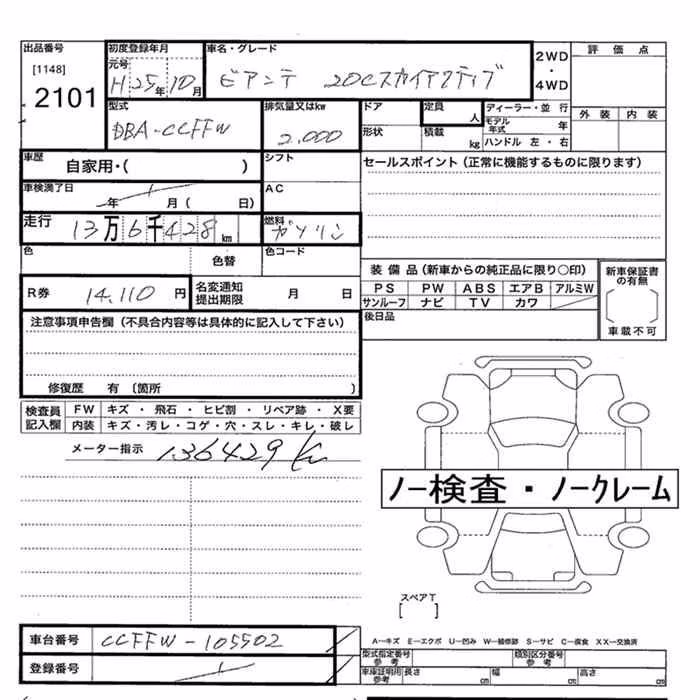 出品番号
[1148]
2101
初度登録年月
元号
H 25年10月
車名・グレード
ビアンテ 20Cスカイアクティブ
2WD
・
4WD
評 価 点
外 装 内 装
型式
DBA-CCFFW
排気量又はkw
2.000
ドア
形状
定員
人
積載
kg
ディーラー・並 行
モデル年式 年
ハンドル 左・右
車歴
自家用・( )
シフト
セールスポイント (正常に機能するものに限ります)
車検満了日
年 月 ( 日)
AC
走行
13万6千428km
燃料
ガソリン
色
色替
色コード
装 備 品 (新車からの純正品に限り〇印)
PS PW ABS エアB アルミW
サンルーフ ナビ TV カワ
新車保証書の有無
車載不可
R券
14.110 円
名変通知
提出期限
月 日
後日品
注意事項申告欄 (不具合内容等は具体的に記入して下さい)
修復歴 有 (箇所 )
検査員記入欄
FW キズ ・ 飛石 ・ ヒビ割 ・ リペア跡 ・ X要
内装 キズ・汚レ・コゲ・穴・スレ・キレ・破レ
メーター指示 136429 Km
ノー検査・ノークレーム
スペアT
[ ]
車台番号
CCFFW-105502
登録番号
A-キズ E-エクボ U-凹み W-補修跡 S-サビ C-腐食 XX-交換済
型式指定番号
参 考
類別区分番号
参 考
車庫証明用
参考
長さ cm 幅 cm 高さ cm